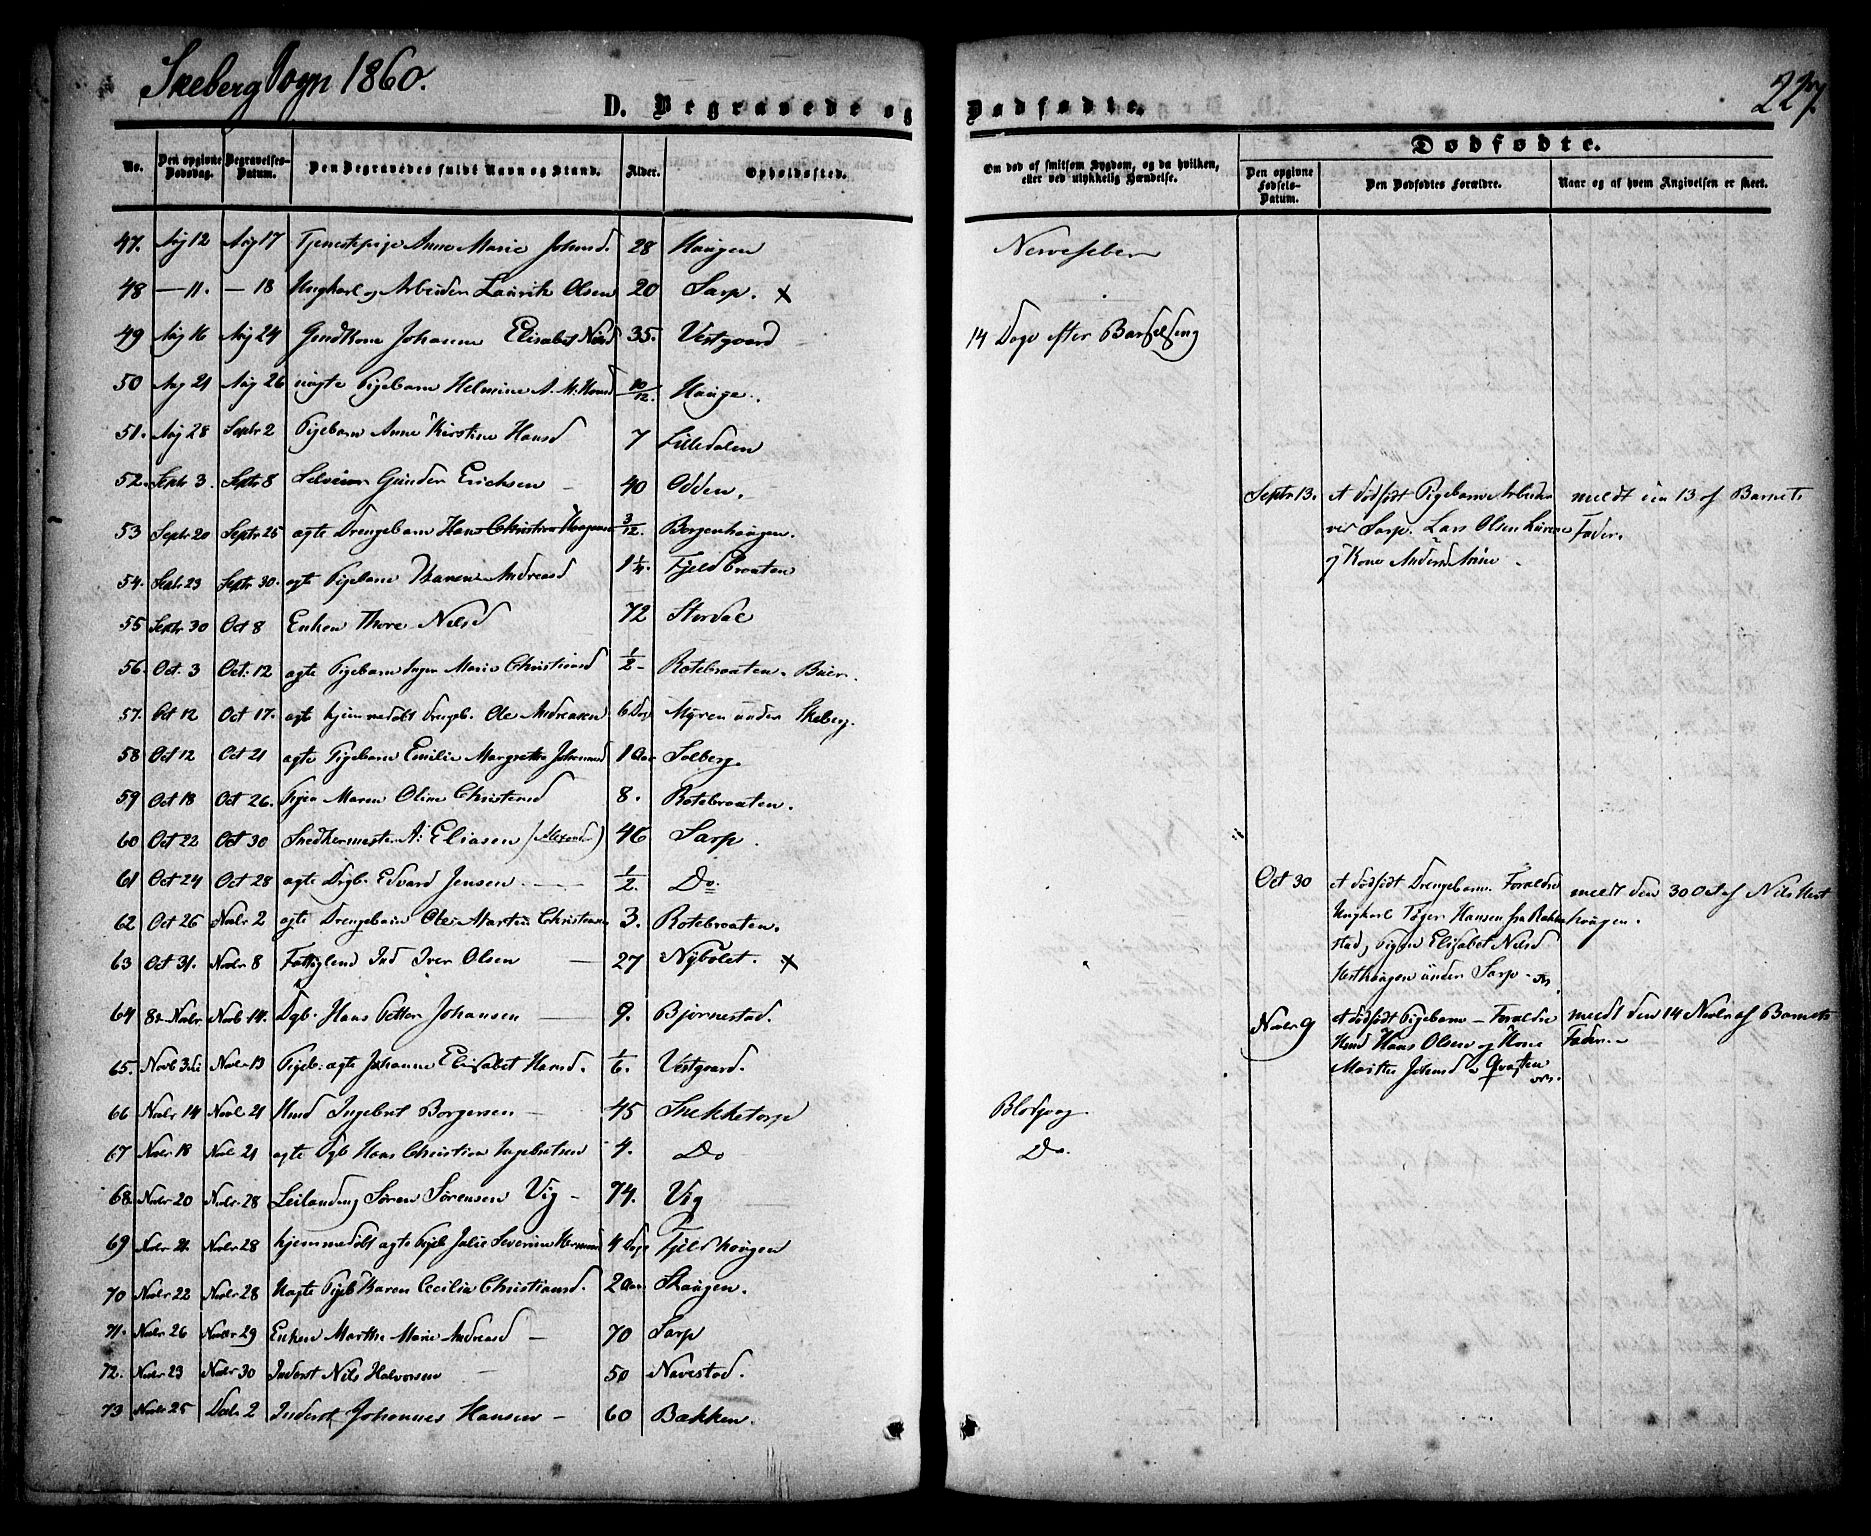 Skeberg Sogn 1860.
227.
D. Begravede og Dødfødte.
No. Den opgivne Dødsdag. Begravelses-Datum. Den Begravedes fulde Navn og Stand. Alder. Opholdssted. Om død af smitsom Sygdom, og da hvilken, eller ved ulykkelig Hændelse.
Dødfødte.
Den opgivne Fødsels-Datum. Den Dødfødtes Forældre. Naar og af hvem Angivelsen er skeet.
47. Aug 12 Aug 17 Tjenestepige Anne Marie Johnsd. 28 Haugen Nervefeber
48 — 11. — 18 Ungkarl og Arbeider Laurits Olsen 20 Sarp. x
49 Aug 16 Aug 24 Gmdkone Johanne Elisabet Nilsd 35. Vestgaard 14 Dage efter Barselseng
50 Aug 21 Aug 26 uægte Pigebarn Helmine A. M. Hansd 10/12. Hauge.
51. Aug 28 Septr 2 Pigebarn Anne Kirstine Hansd 7 Lilledalen
52. Septr 3. Septr 8 Selveier Gunder Erichsen — 40 Odden.
53 Septr 20 Septr 25 ægte Drengebarn Hans Christian 3/12. Borgenhaugen.
54. Septr 23 Septr 30. ægte Pigebarn Karen Andreasd 1 Fjeldbraaten
55 Septr 30 Oct 8 Enken Thore Nilsd 72 Stordal
56. Oct. 3 Oct: 12 ægte Pigebarn Inger Marie Christiansd 1/2 - Rotebraaten.
57. Oct 12 Oct 17. ægte hjemmedøbt Drengeb. Ole Andreasen 6 Dage Myren under Skeberg.
58 Oct 12 Oct 21 ægte Pigebarn Emilie Margrethe Johannesd 1 Aar Solberg.
59 Oct 18 Oct 26. Pigen Maren Oline Christensd 8. Rotebraaten.
60 Oct 22 Oct 30 Snedkermester A: Eliasen (Alexander) 46 Sarp.
61 Oct 24 Oct 28 ægte Drgb. Edvard Jensen. — 1/2. Do.
62 Oct 26 Novbr 2 ægte Drengebarn Ole Martin Christiansen 3. Rotebraaten.
63 Oct 31. Novbr 8 Fattiglem Ind Iver Olsen — 27 Nybølet. x
64 8de Novbr Novb 14. Dgb. Hans Petter Johansen — 9. Bjørnestad.
65. Novb 3die Novbr 13 Pigeb. ægte Johanne Elisabet Hansd. 1/6. Vestgaard.
66 Novbr 14 Novbr 21 Hmd Ingebret Borgersen — 45 Snekketorp Blodgang.
67 Novbr 18 Novbr 21 ægte Dgb Hans Christian Ingebretsen 4. Do Do.
68. Novbr 20 Novbr 28 Leilænding Søren Sørensen Vig — 74. Vig
69 Novbr 21. Novbr 28 hjemmedøbt ægte Pigeb Julie Severine 4 Dage Fjeldhaugen
70 Novbr 22 Novbr 28 Uægte Pigeb Karen Cecilie Christiansd. 2 Aar Skaugen.
71. Novbr 26 Novbr 29 Enken Marthe Marie Andreasd — 70 Sarp
72. Novbr 23 Novbr 30 Inderst Nils Halvorsen — 50 Navestad.
73 Novbr 25 Decbr 2 Inderst Johannes Hansen — 60 Bakken.
Septr 13. et dødfødt Pigebarn Arbeider
ved Sarp. Lars Olsen
og Kone Anne.
meldt den 13 af Barnets
Fader.
Oct 30 et dødfødt Drengebarn. Forældre
Ungkarl Tøger Hansen fra Rakke-
stad, Pigen Elisabet Nilsd
Hesthaugen under Sarp
meldt den 30 Oct af Nils Hest
haugen.
Novbr 9 et dødfødt Pigebarn — Forældre
Hmd Hans Olsen og Kone
Marthe Johansd
meldt den 14 Novbr af Barnets
Fader.